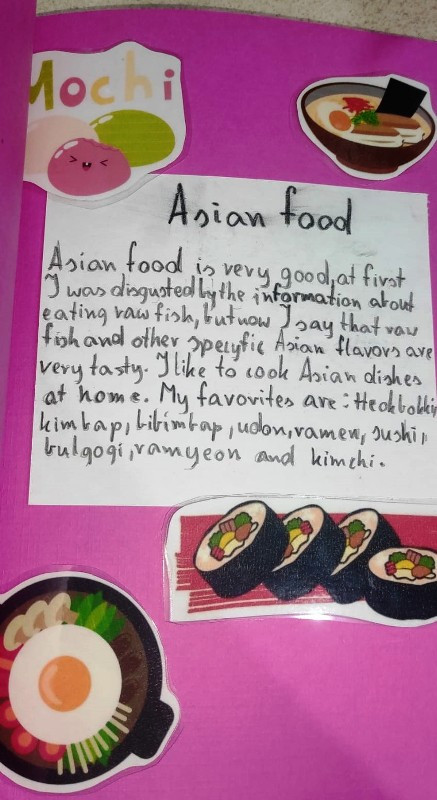 Mochi
Asian food
Asian food is very good, at first
I was disgusted by the information about
eating raw fish, but now I say that raw
fish and other specyfic Asian flavors are
very tasty. I like to cook Asian dishes
at home. My favorites are: Tteokbokki,
kimbap, bibimbap, udon, ramen, sushi,
bulgogi, ramyeon and kimchi.